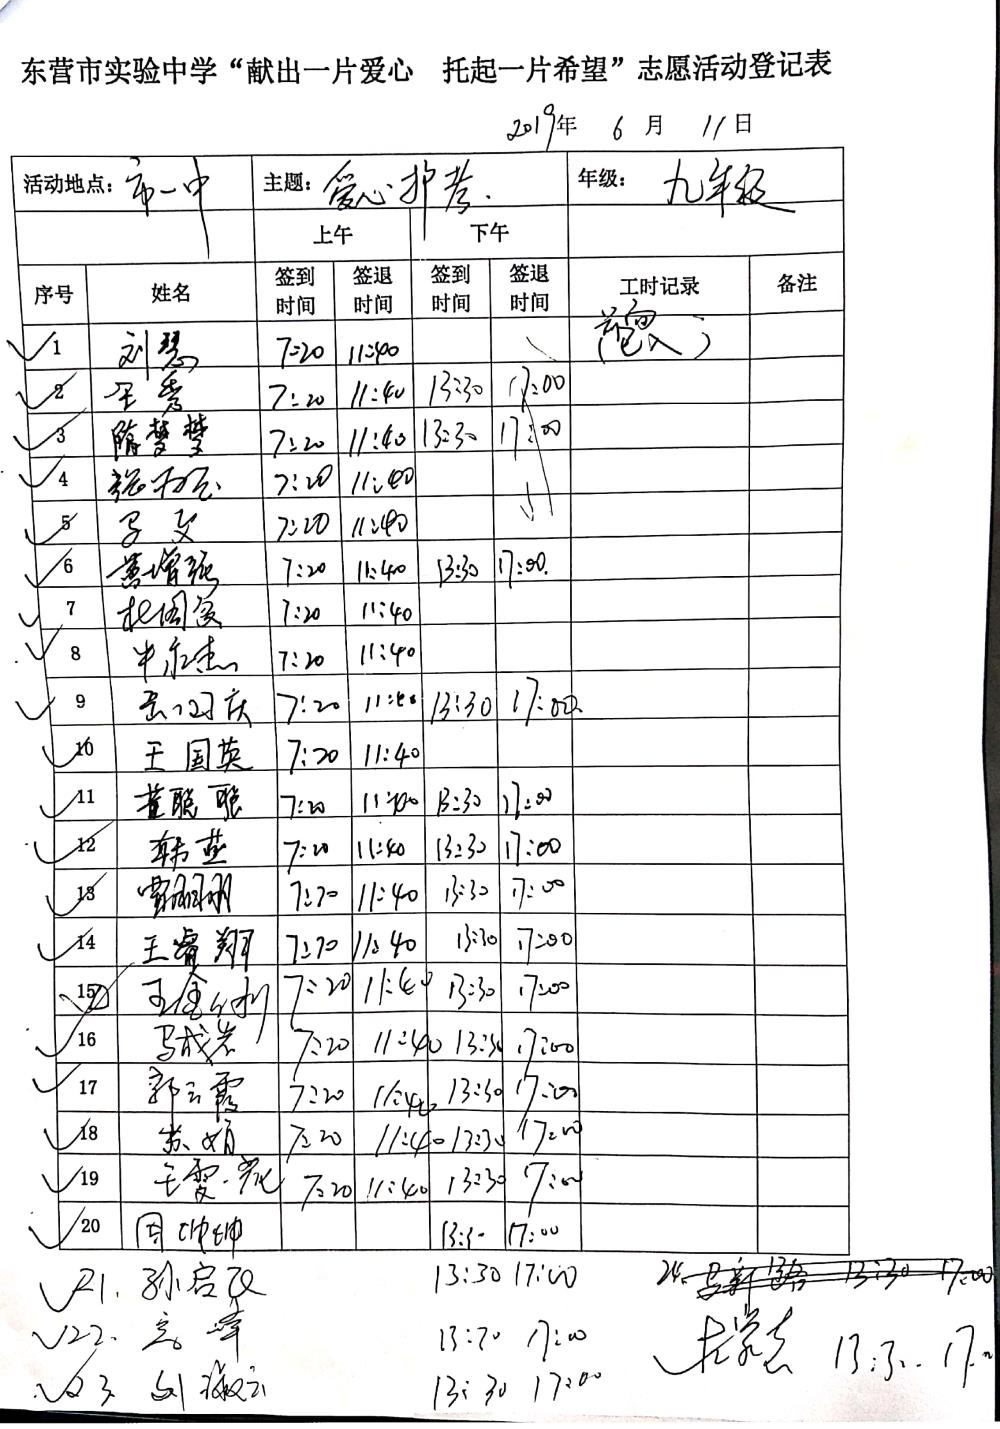 东营市实验中学“献出一片爱心 托起一片希望”志愿活动登记表
2019年 6 月 11 日
活动地点：市一中 主题：爱心护考. 年级：九年级
上午 下午
序号 姓名 签到时间 签退时间 签到时间 签退时间 工时记录 备注
1 刘慧 7:20 11:40
2 王秀 7:20 11:40 13:30 17:00
3 隋梦梦 7:20 11:40 13:30 17:00
4 7:20 11:40
5 马文 7:20 11:40
6 黄增强 7:20 11:40 13:30 17:00
7 杜国俊 7:20 11:40
8 牛永杰 7:20 11:40
9 7:20 11:40 13:30 17:00
10 王国英 7:20 11:40
11 董聪聪 7:20 11:40 13:30 17:00
12 韩燕 7:20 11:40 13:30 17:00
13 贾明明 7:20 11:40 13:30 17:00
14 王睿翔 7:20 11:40 13:30 17:00
15 7:20 11:40 13:30 17:00
16 马成岩 7:20 11:40 13:30 17:00
17 郭云霞 7:20 11:40 13:30 17:00
18 苏娟 7:20 11:40 13:30 17:00
19 7:20 11:40 13:30 17:00
20 周坤坤 13:30 17:00
21. 孙启政 13:30 17:00 24. 13:30 17:00
22. 高峰 13:30 17:00 13:30 17:00
23 刘淑云 13:30 17:00